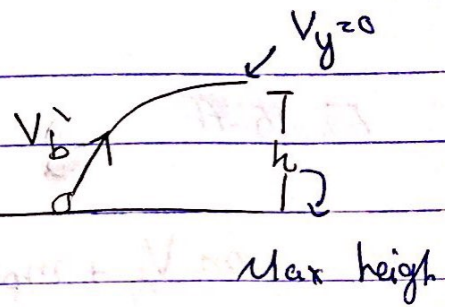 Vy=0
Vb
h
Max heigh